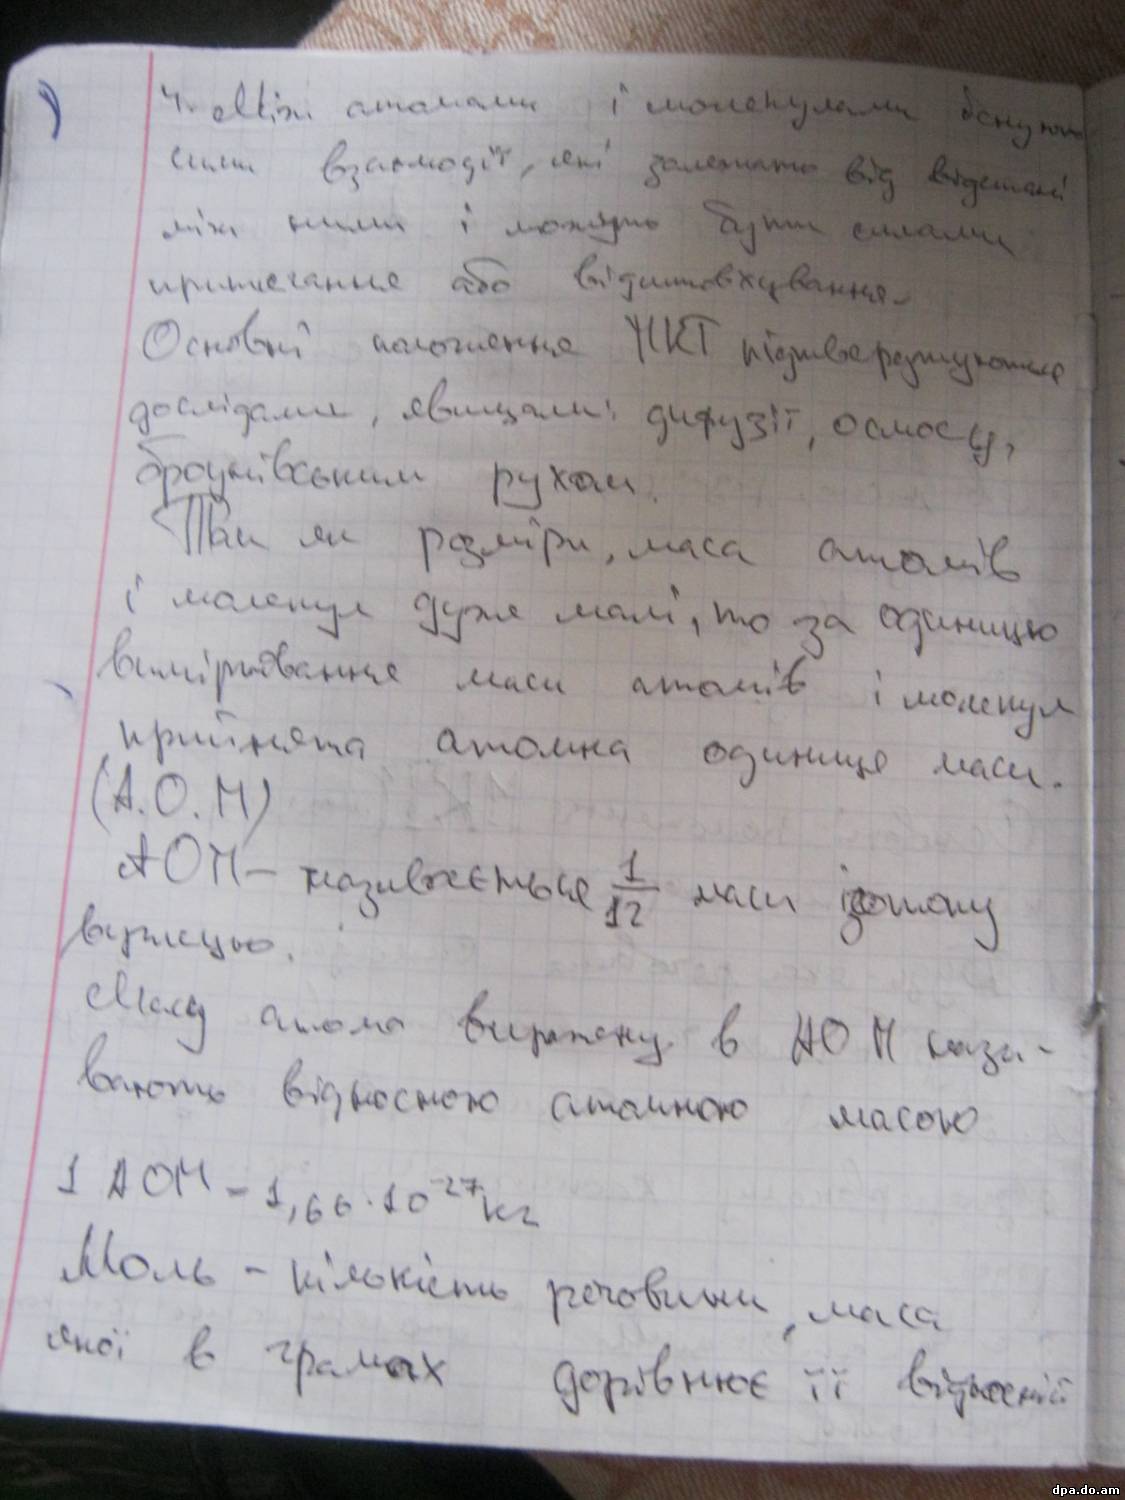 4. Між атомами і молекулами існують
сили взаємодії, які залежать від відстані
між ними і можуть бути силами
притягання або відштовхування.
Основні положення МКТ підтверджуються
дослідами, явищами: дифузії, осмосу,
броунівським рухом.
Так як розміри, маса атомів
і молекул дуже малі, то за одиницю
вимірювання маси атомів і молекул
прийнята атомна одиниця маси.
(А.О.М)
АОМ - називається 1/12 маси ізотопу
вуглецю.
Масу атома виражену в АОМ нази-
вають відносною атомною масою
1 АОМ = 1,66·10⁻²⁷кг
Моль - кількість речовини, маса
якої в грамах дорівнює її відносній
dpa.do.am